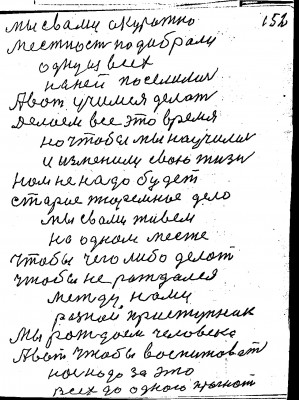 152
мы с вами окуратно
местност подобрали
одну из всех
на ней поселилис
А вот учимся делат
делаем все это время
но чтобы мы научилис
и изменили свою жизн
нам не надо будет
старое тюремное дело
мы с вами живем
на одном месте
чтобы чего либо делат
чтобы не рождался
между нами
разной приступник
мы рождаем человека
А вот чтобы воспитоват
нас надо за это
всех до одного